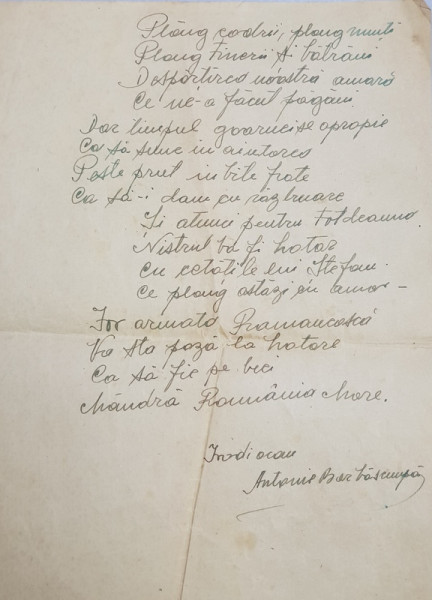 Plâng codrii, plâng munți
Plâng tinerii și bătrâni
Despărțirea noastră amară
Ce ne-a făcut păgâni.
Dar timpul goarnei se apropie
Ca să sune in aintarea
Peste prut iubite frate
Ca să-i dam cu răzbunare
Și atunci pentru totdeauna
Nistrul va fi hotar
Cu cetățile lui Ștefan
Ce plâng astăzi cu amar -
Iar armata Romanească
Va sta pază la hotare
Ca să fie pe veci
Mândră România Mare.
Antonie